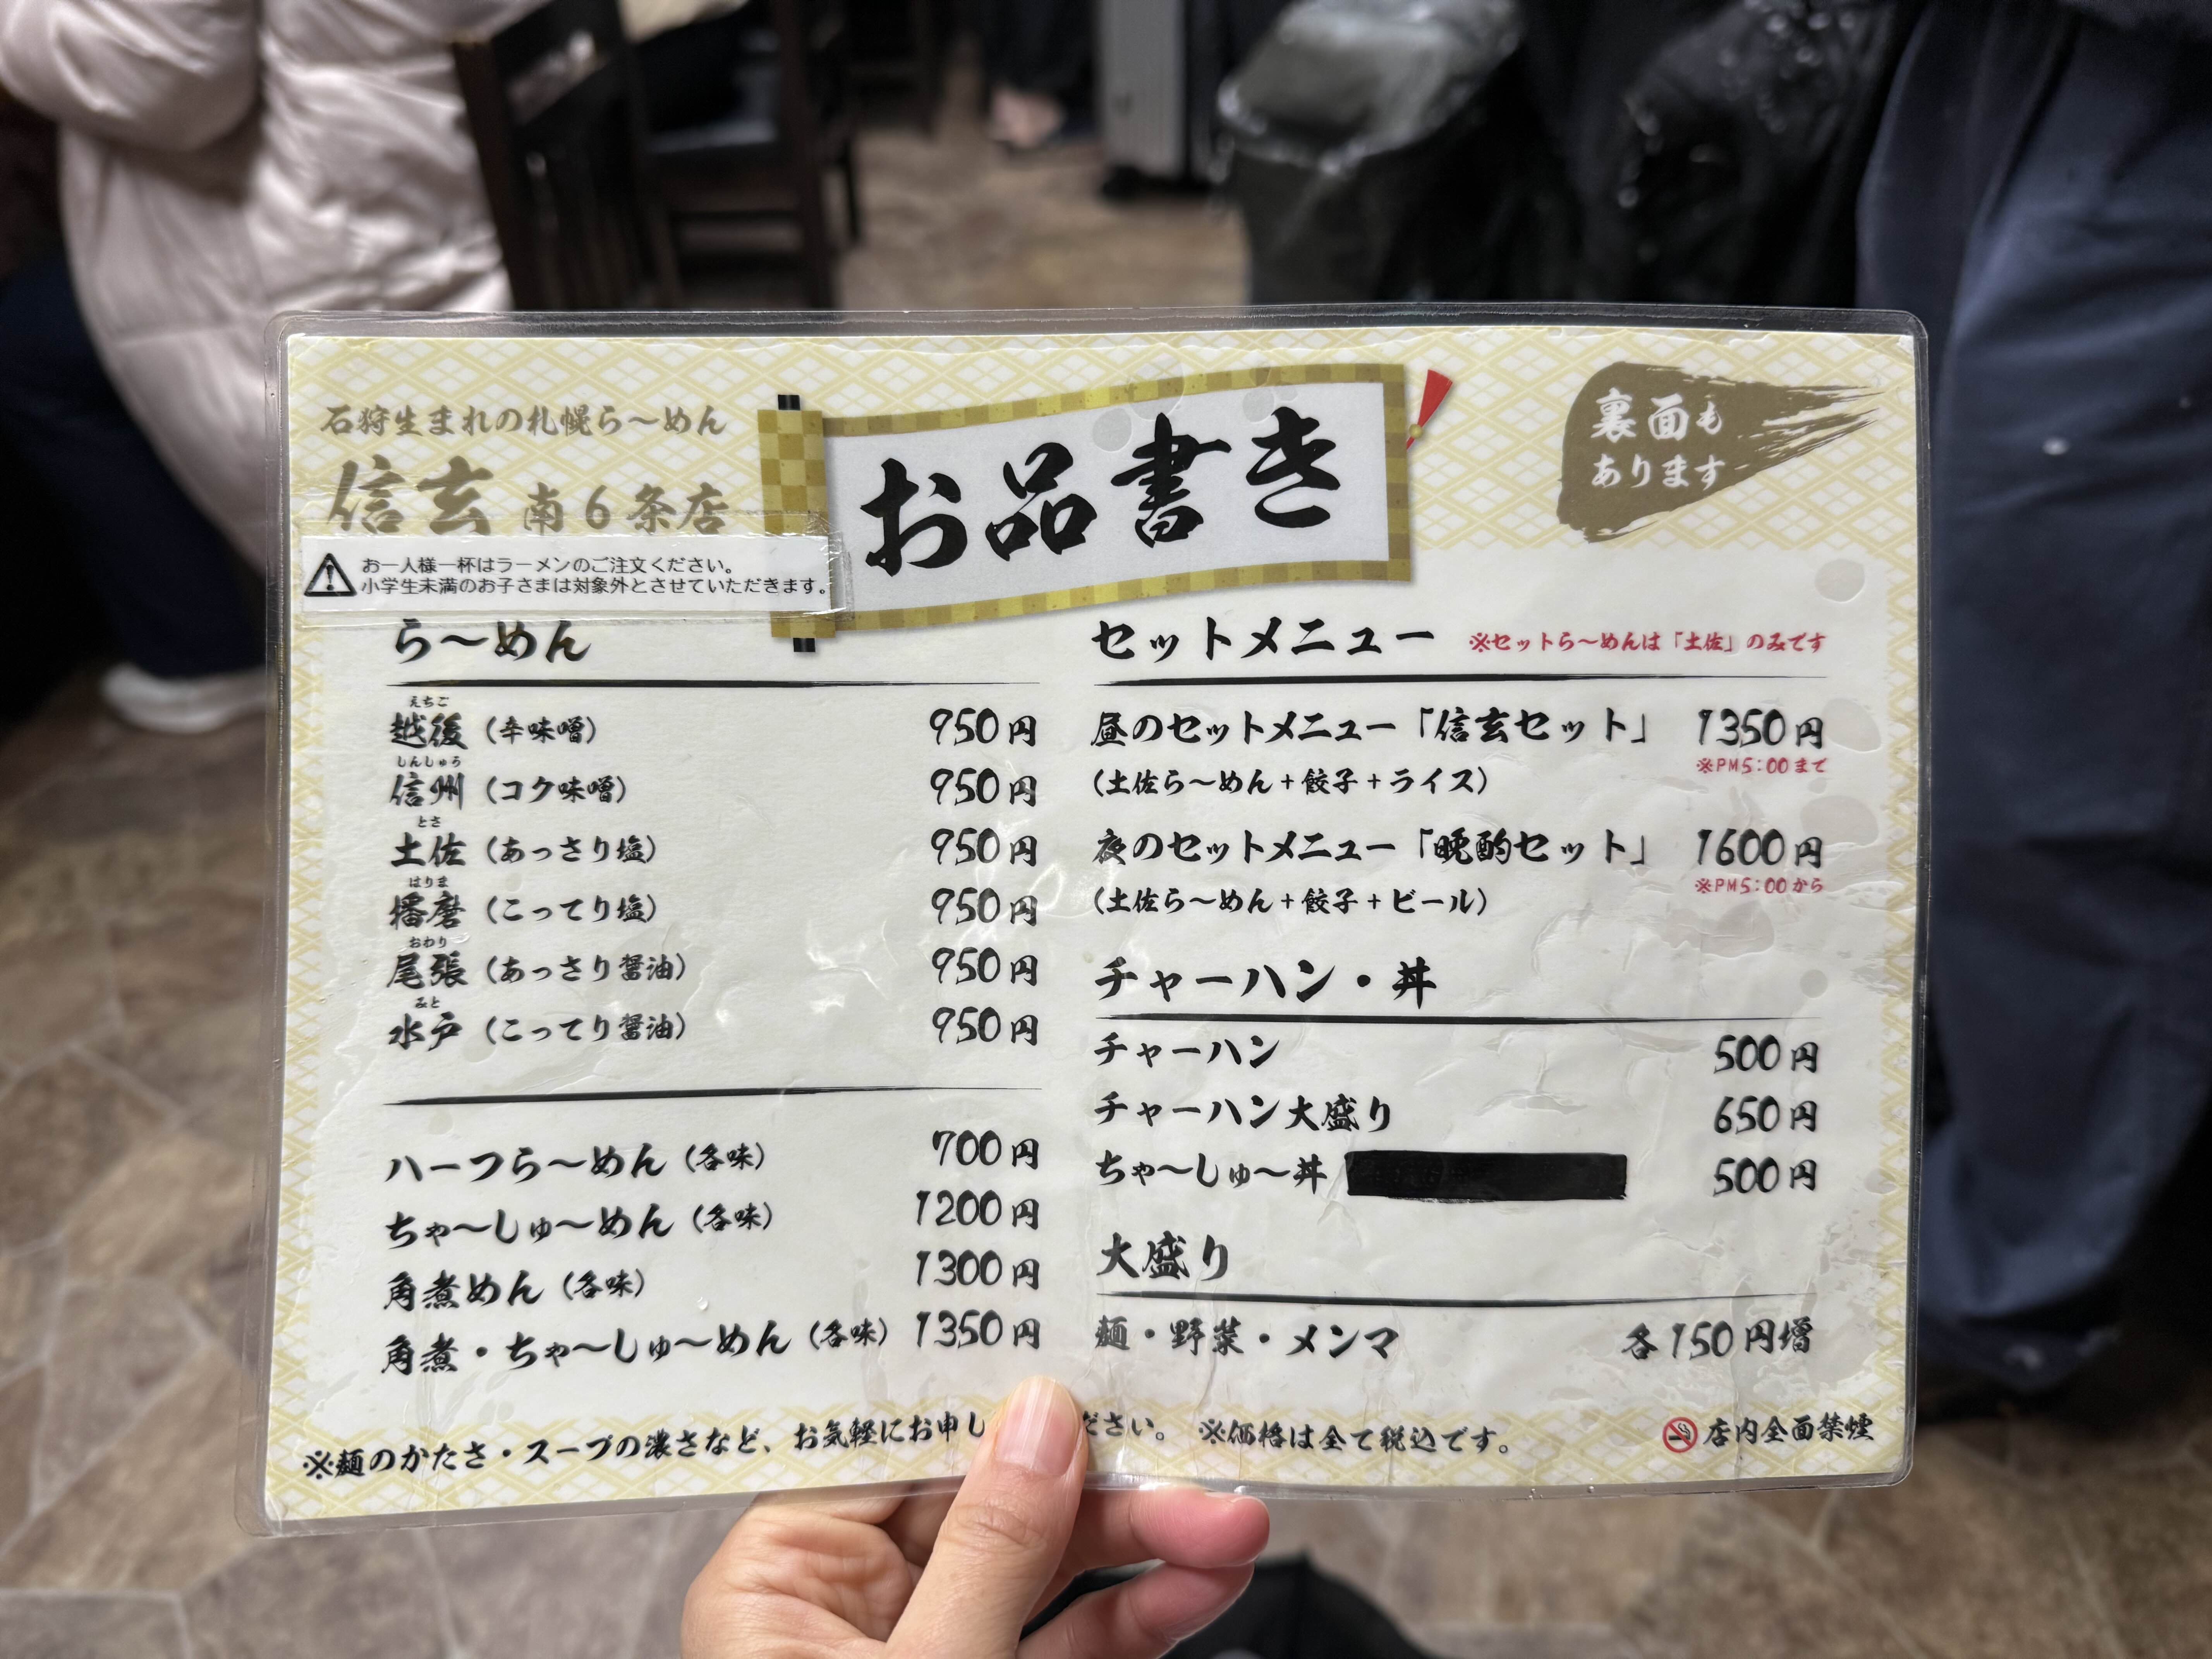 石狩生まれの札幌ら〜めん
信玄 南6条店
お品書き
裏面も
あります
お一人様一杯はラーメンのご注文ください。
小学生未満のお子さまは対象外とさせていただきます。
ら〜めん
えちご
越後（辛味噌） 950円
しんしゅう
信州（コク味噌） 950円
とさ
土佐（あっさり塩） 950円
はりま
播磨（こってり塩） 950円
おわり
尾張（あっさり醤油） 950円
みと
水戸（こってり醤油） 950円
ハーフら〜めん（各味） 700円
ちゃ〜しゅ〜めん（各味） 1200円
角煮めん（各味） 1300円
角煮・ちゃ〜しゅ〜めん（各味） 1350円
セットメニュー ※セットら〜めんは「土佐」のみです
昼のセットメニュー「信玄セット」 1350円
※PM5:00まで
（土佐ら〜めん+餃子+ライス）
夜のセットメニュー「晩酌セット」 1600円
※PM5:00から
（土佐ら〜めん+餃子+ビール）
チャーハン・丼
チャーハン 500円
チャーハン大盛り 650円
ちゃ〜しゅ〜丼 500円
大盛り
麺・野菜・メンマ 各150円増
※麺のかたさ・スープの濃さなど、お気軽にお申し ださい。 ※価格は全て税込です。
店内全面禁煙